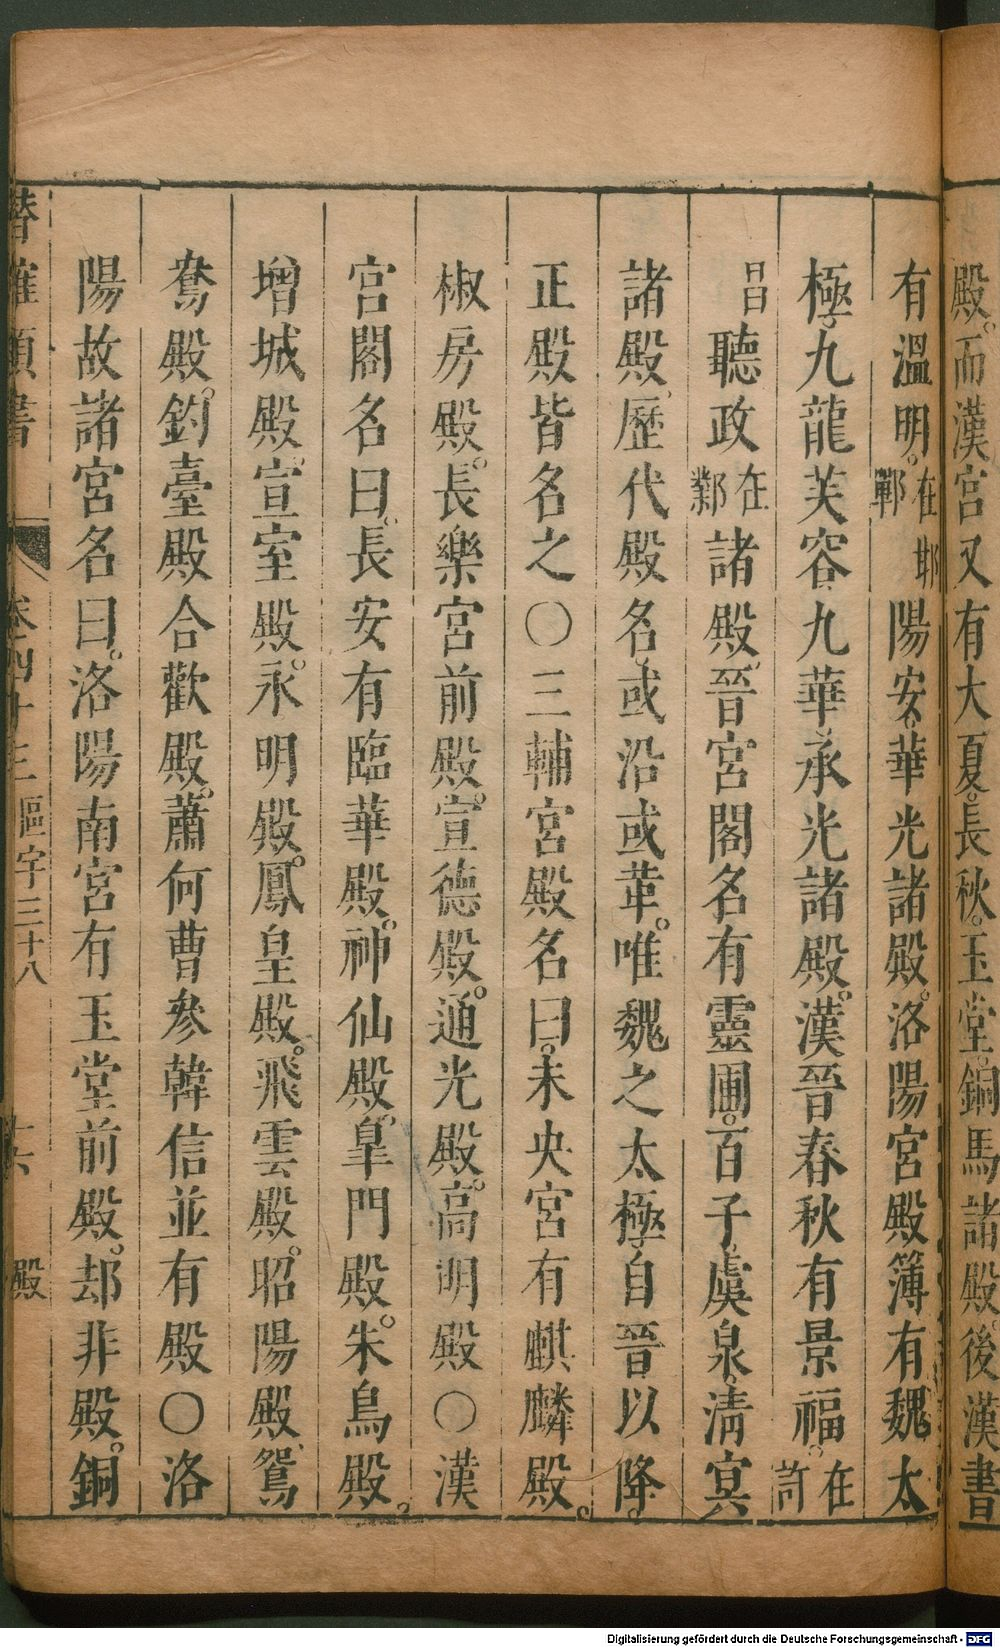 殿。而漢宮又有大夏。長秋。玉堂。銅馬諸殿。後漢書
有溫明。在邯鄲陽安。華光諸殿。洛陽宮殿簿有魏太
極。九龍芙容。九華。承光諸殿。漢晉春秋有景福。在許
昌聽政在鄴諸殿。晉宮閣名有靈圃。百子。虞泉。清㝠
諸殿。歷代殿名。或沿或革。唯魏之太極。自晉以降。
正殿皆名之○三輔宮殿名曰。未央宮有麒麟殿。
椒房殿。長樂宮前殿。宣德殿。通光殿。高明殿○漢
宮閣名曰。長安有臨華殿。神仙殿。臯門殿。朱鳥殿。
增城殿。宣室殿。永明殿。鳳皇殿。飛雲殿。昭陽殿。鴛
鴦殿。鈞臺殿合歡殿。蕭何曹參韓信並有殿○洛
陽故諸宮名曰。洛陽南宮有玉堂前殿。却非殿。銅
潛確類書 卷四十三 區宇三十八 十六 殿
Digitalisierung gefördert durch die Deutsche Forschungsgemeinschaft - DFG